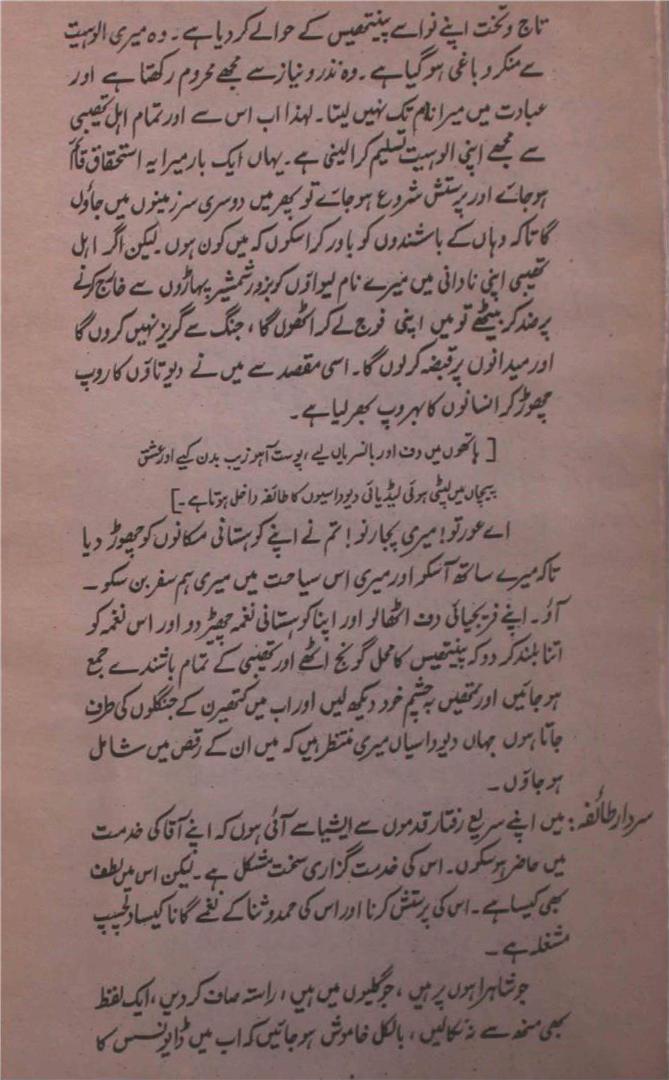 تاج و تخت اپنے نواسے پینتھیس کے حوالے کر دیا ہے۔ وہ میری الوہیت
سے منکر و باغی ہو گیا ہے۔ وہ نذر و نیاز سے مجھے محروم رکھتا ہے اور
عبادت میں میرا نام تک نہیں لیتا۔ لہذا اب اس سے اور تمام اہل تھیبی
سے مجھے اپنی الوہیت تسلیم کرا لینی ہے۔ یہاں ایک بار میرا یہ استحقاق قائم
ہو جائے اور پرستش شروع ہو جائے تو پھر میں دوسری سرزمینوں میں جاؤں
گا تاکہ وہاں کے باشندوں کو باور کرا سکوں کہ میں کون ہوں۔ لیکن اگر اہل
تھیبی اپنی نادانی میں میرے نام لیواؤں کو بزور شمشیر پہاڑوں سے خارج کرنے
پر ضد کر بیٹھے تو میں اپنی فوج لے کر اٹھوں گا، جنگ سے گریز نہیں کروں گا
اور میدانوں پر قبضہ کر لوں گا۔ اسی مقصد سے میں نے دیوتاؤں کا روپ
چھوڑ کر انسانوں کا بہروپ بھر لیا ہے۔
[ہاتھوں میں دف اور بانسریاں لیے، پوست آہو زیب بدن کیے اور عشق
پیچاں میں لپٹی ہوئی لیڈیائی دیوداسیوں کا طائفہ داخل ہوتا ہے۔]
اے عورتو! میری پجارنو! تم نے اپنے کوہستانی مکانوں کو چھوڑ دیا
تاکہ میرے ساتھ آ سکو اور میری اس سیاحت میں میری ہم سفر بن سکو۔
آؤ۔ اپنے فریجیائی دف اٹھا لو اور اپنا کوہستانی نغمہ چھیڑ دو اور اس نغمہ کو
اتنا بلند کر دو کہ پینتھیس کا محل گونج اٹھے اور تھیبی کے تمام باشندے جمع
ہو جائیں اور تمھیں بہ چشم خود دیکھ لیں اور اب میں کتھیرن کے جنگلوں کی طرف
جاتا ہوں جہاں دیوداسیاں میری منتظر ہیں کہ میں ان کے رقص میں شامل
ہو جاؤں۔
سردار طائفہ: میں اپنے سریع رفتار قدموں سے ایشیا سے آئی ہوں کہ اپنے آقا کی خدمت
میں حاضر ہو سکوں۔ اس کی خدمت گزاری سخت مشکل ہے۔ لیکن اس میں لطف
بھی کیسا ہے۔ اس کی پرستش کرنا اور اس کی حمد و ثنا کے نغمے گانا کیسا دلچسپ
مشغلہ ہے۔
جو شاہراہوں پر ہیں، جو گلیوں میں ہیں، راستہ صاف کر دیں، ایک لفظ
بھی منھ سے نہ نکالیں، بالکل خاموش ہو جائیں کہ اب میں ڈایونسس کا